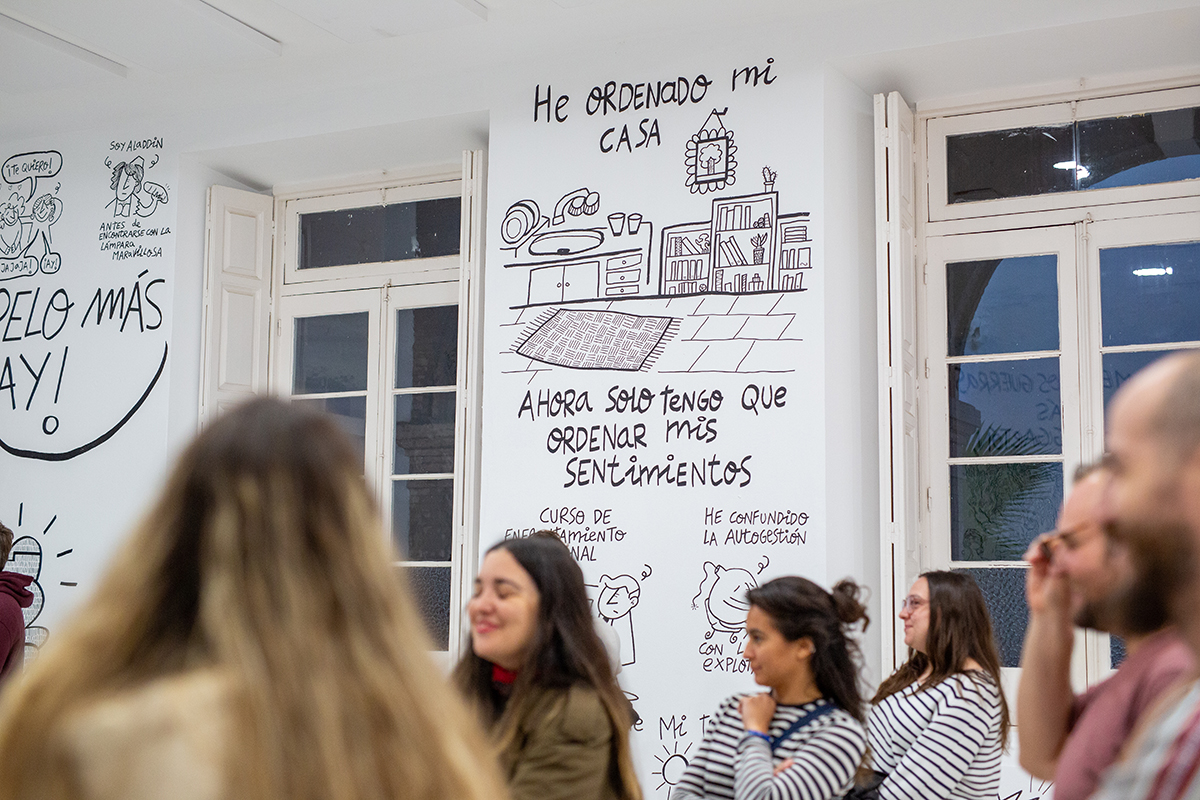 ¡TE QUIERO!
JAJAJA!
¡AY!
SOY ALADDÍN
ANTES de
ENCONTRARSE CON LA
LÁMPARA
MARAVILLOSA
PELO MÁS
AY!
HE ORDENADO mi
CASA
AHORA SOLO TENGO QUE
ORDENAR MIS
SENTIMIENTOS
CURSO DE
HE CONFUNDIDO
LA AUTOGESTIÓN
CON
Mi